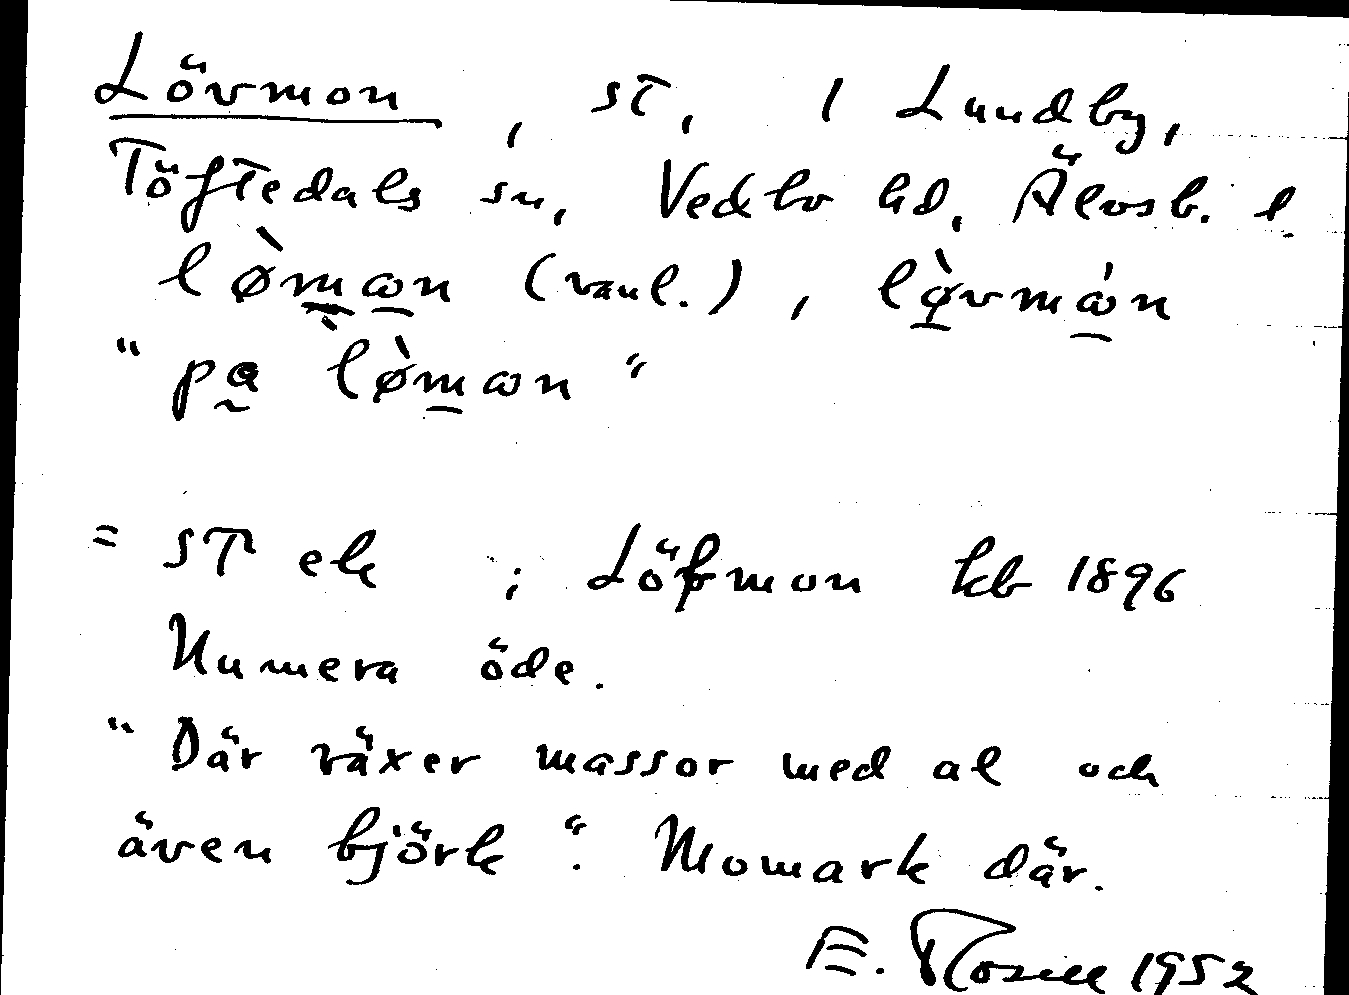 Lövmon, st, 1 Lundby,
Töftedals sn, Vedbo hd, Älvsb. l
lø̀man (vanl.), lø̀vmán
"pa lø̀man"
= st ek ; Löfmon kb 1896
Numera öde.
"Där växer massor med al och
även björk". Momark där.
E. Rosell 1952